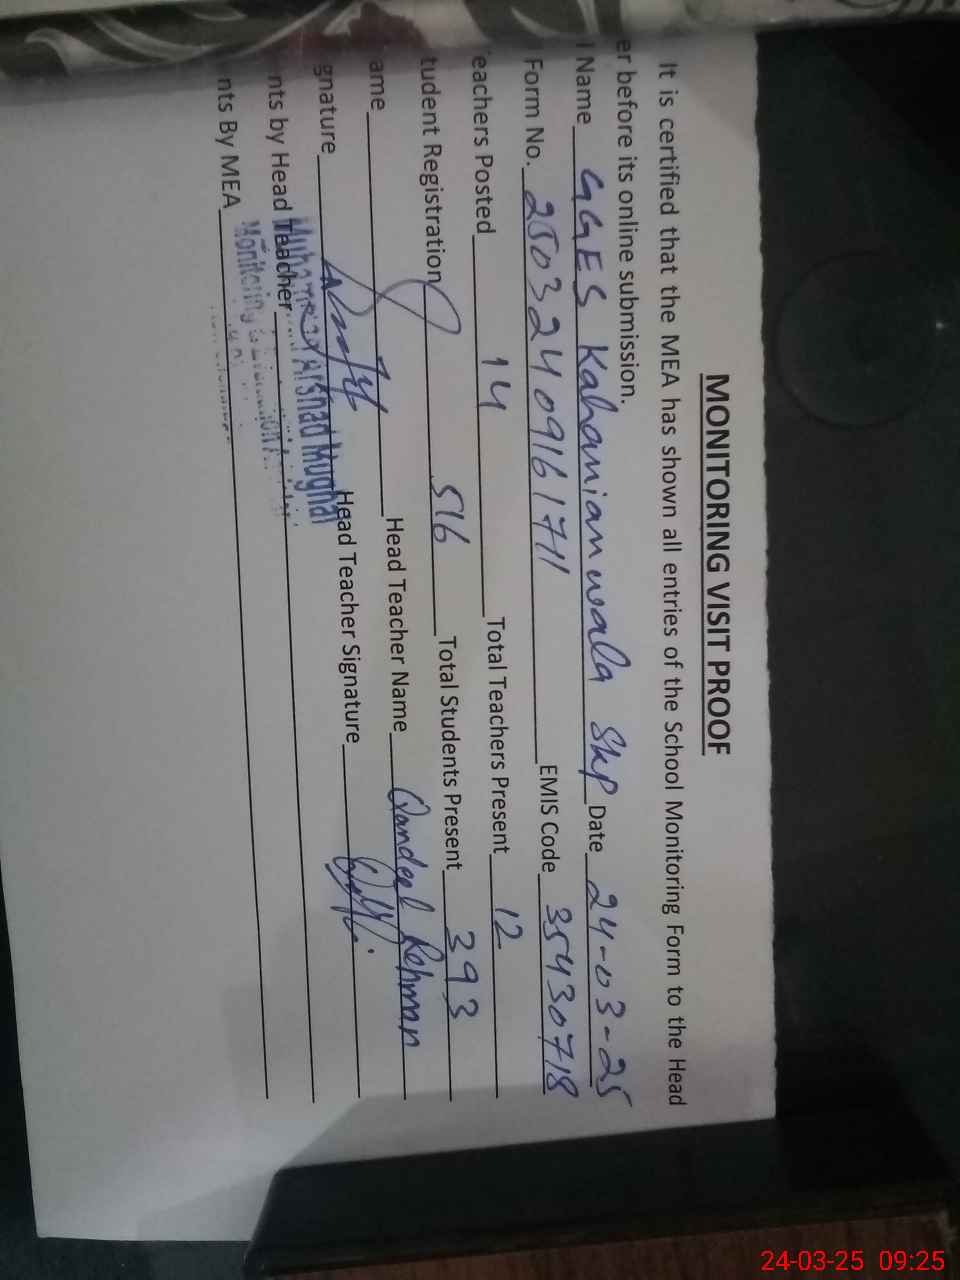 MONITORING VISIT PROOF
It is certified that the MEA has shown all entries of the School Monitoring Form to the Head
er before its online submission.
Name GGES Kahanianwala SKP Date 24-03-25
Form No. 25032409161711 EMIS Code 35430718
eachers Posted 14 Total Teachers Present 12
tudent Registration 516 Total Students Present 393
ame Head Teacher Name Qandeel Rehman
gnature Head Teacher Signature
Muhammad Arshad Mughal
nts by Head Teacher
Monitoring &
nts By MEA
24-03-25 09:25